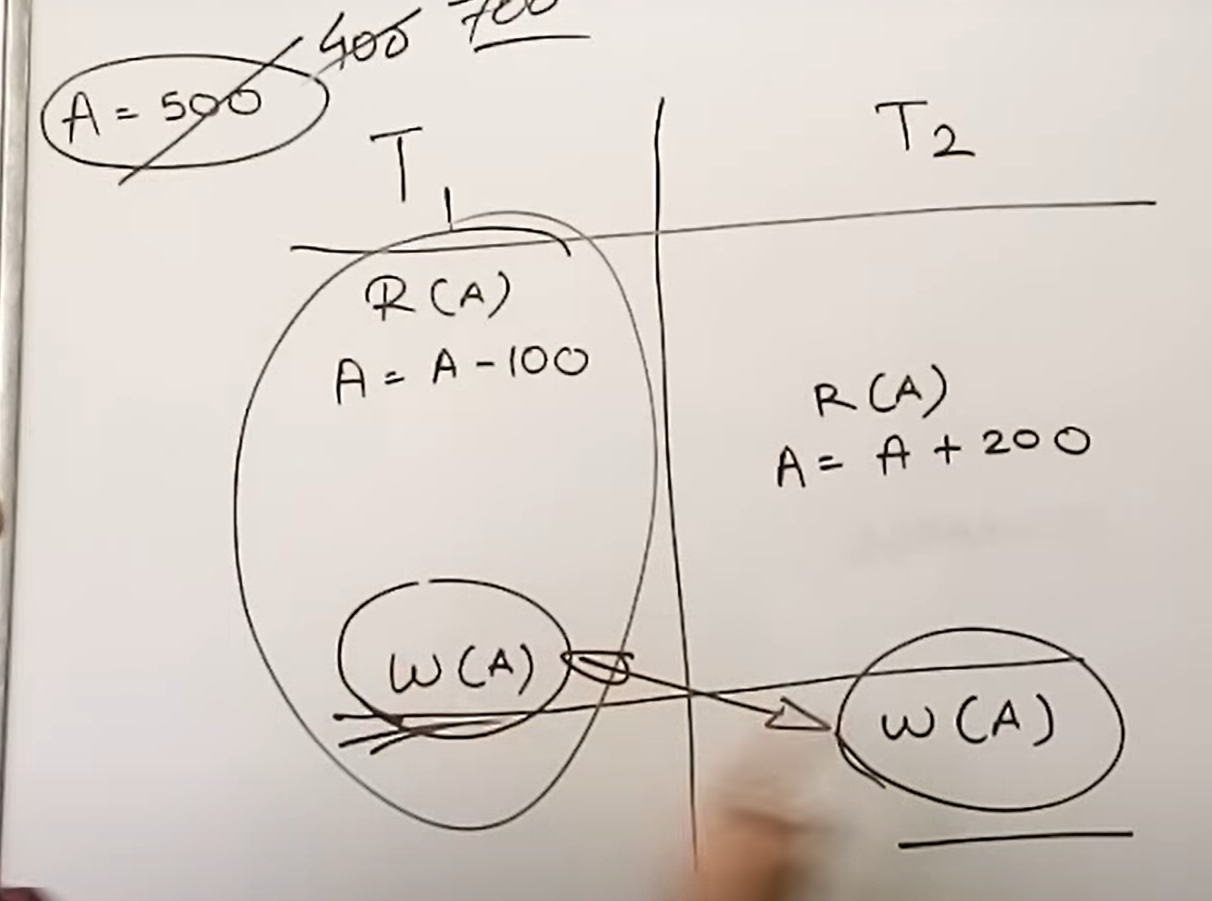 A = 500 400 700
T1 T2
R(A)
A = A - 100
R(A)
A = A + 200
W(A)
W(A)